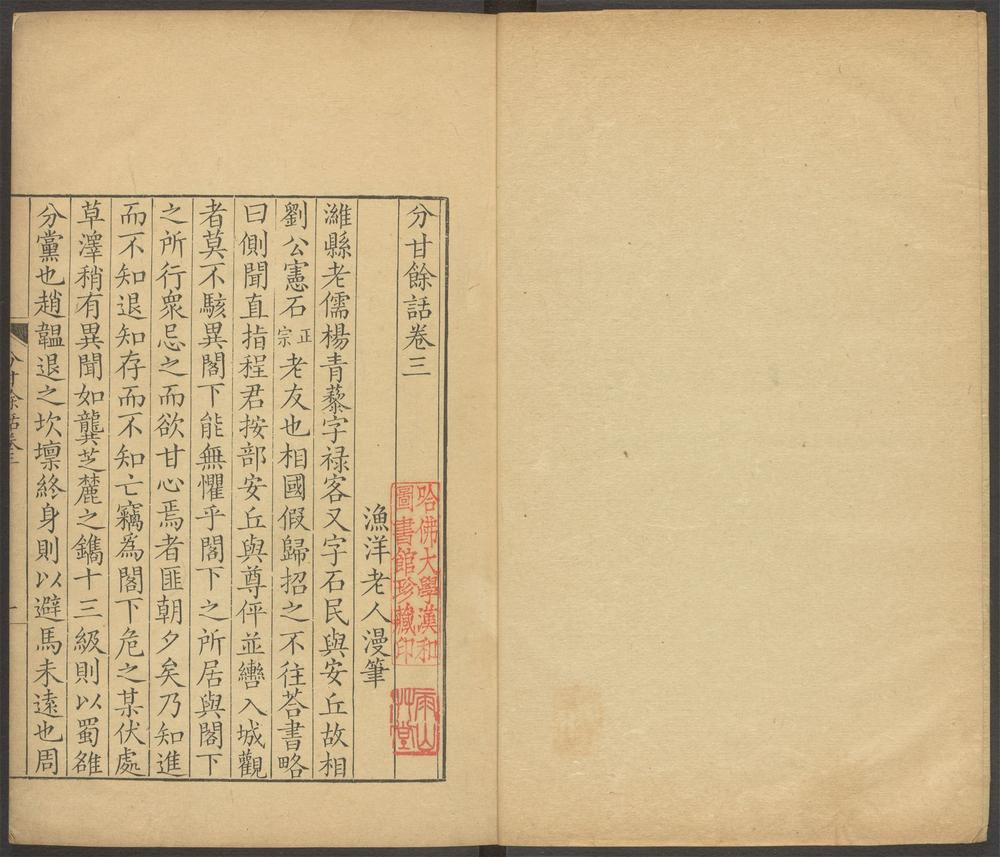 分甘餘話卷三
漁洋老人漫筆
濰縣老儒楊青藜字祿客又字石民與安丘故相
劉公憲石正宗老友也相國假歸招之不往荅書略
曰側聞直指程君按部安丘與尊伻並轡入城觀
者莫不駭異閣下能無懼乎閣下之所居與閣下
之所行衆忌之而欲甘心焉者匪朝夕矣乃知進
而不知退知存而不知亡竊為閣下危之某伏處
草澤稍有異聞如龔芝麓之鐫十三級則以蜀雒
分黨也趙韞退之坎壈終身則以避馬未遠也周
分甘餘話卷三
一
哈佛大學漢和
圖書館珍藏印
雨山
草堂